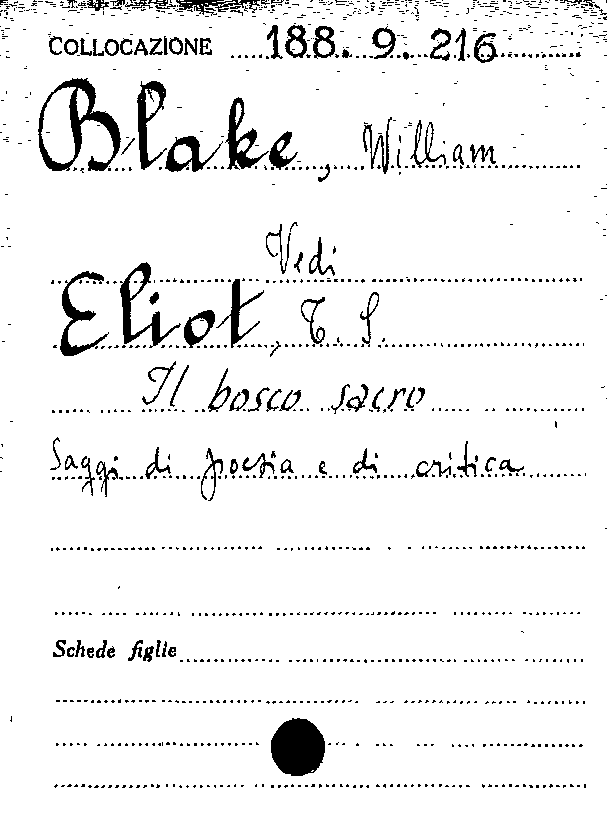 COLLOCAZIONE 188. 9. 216
Blake, William
Vedi
Eliot, T. S.
Il bosco sacro
Saggi di poesia e di critica
Schede figlie